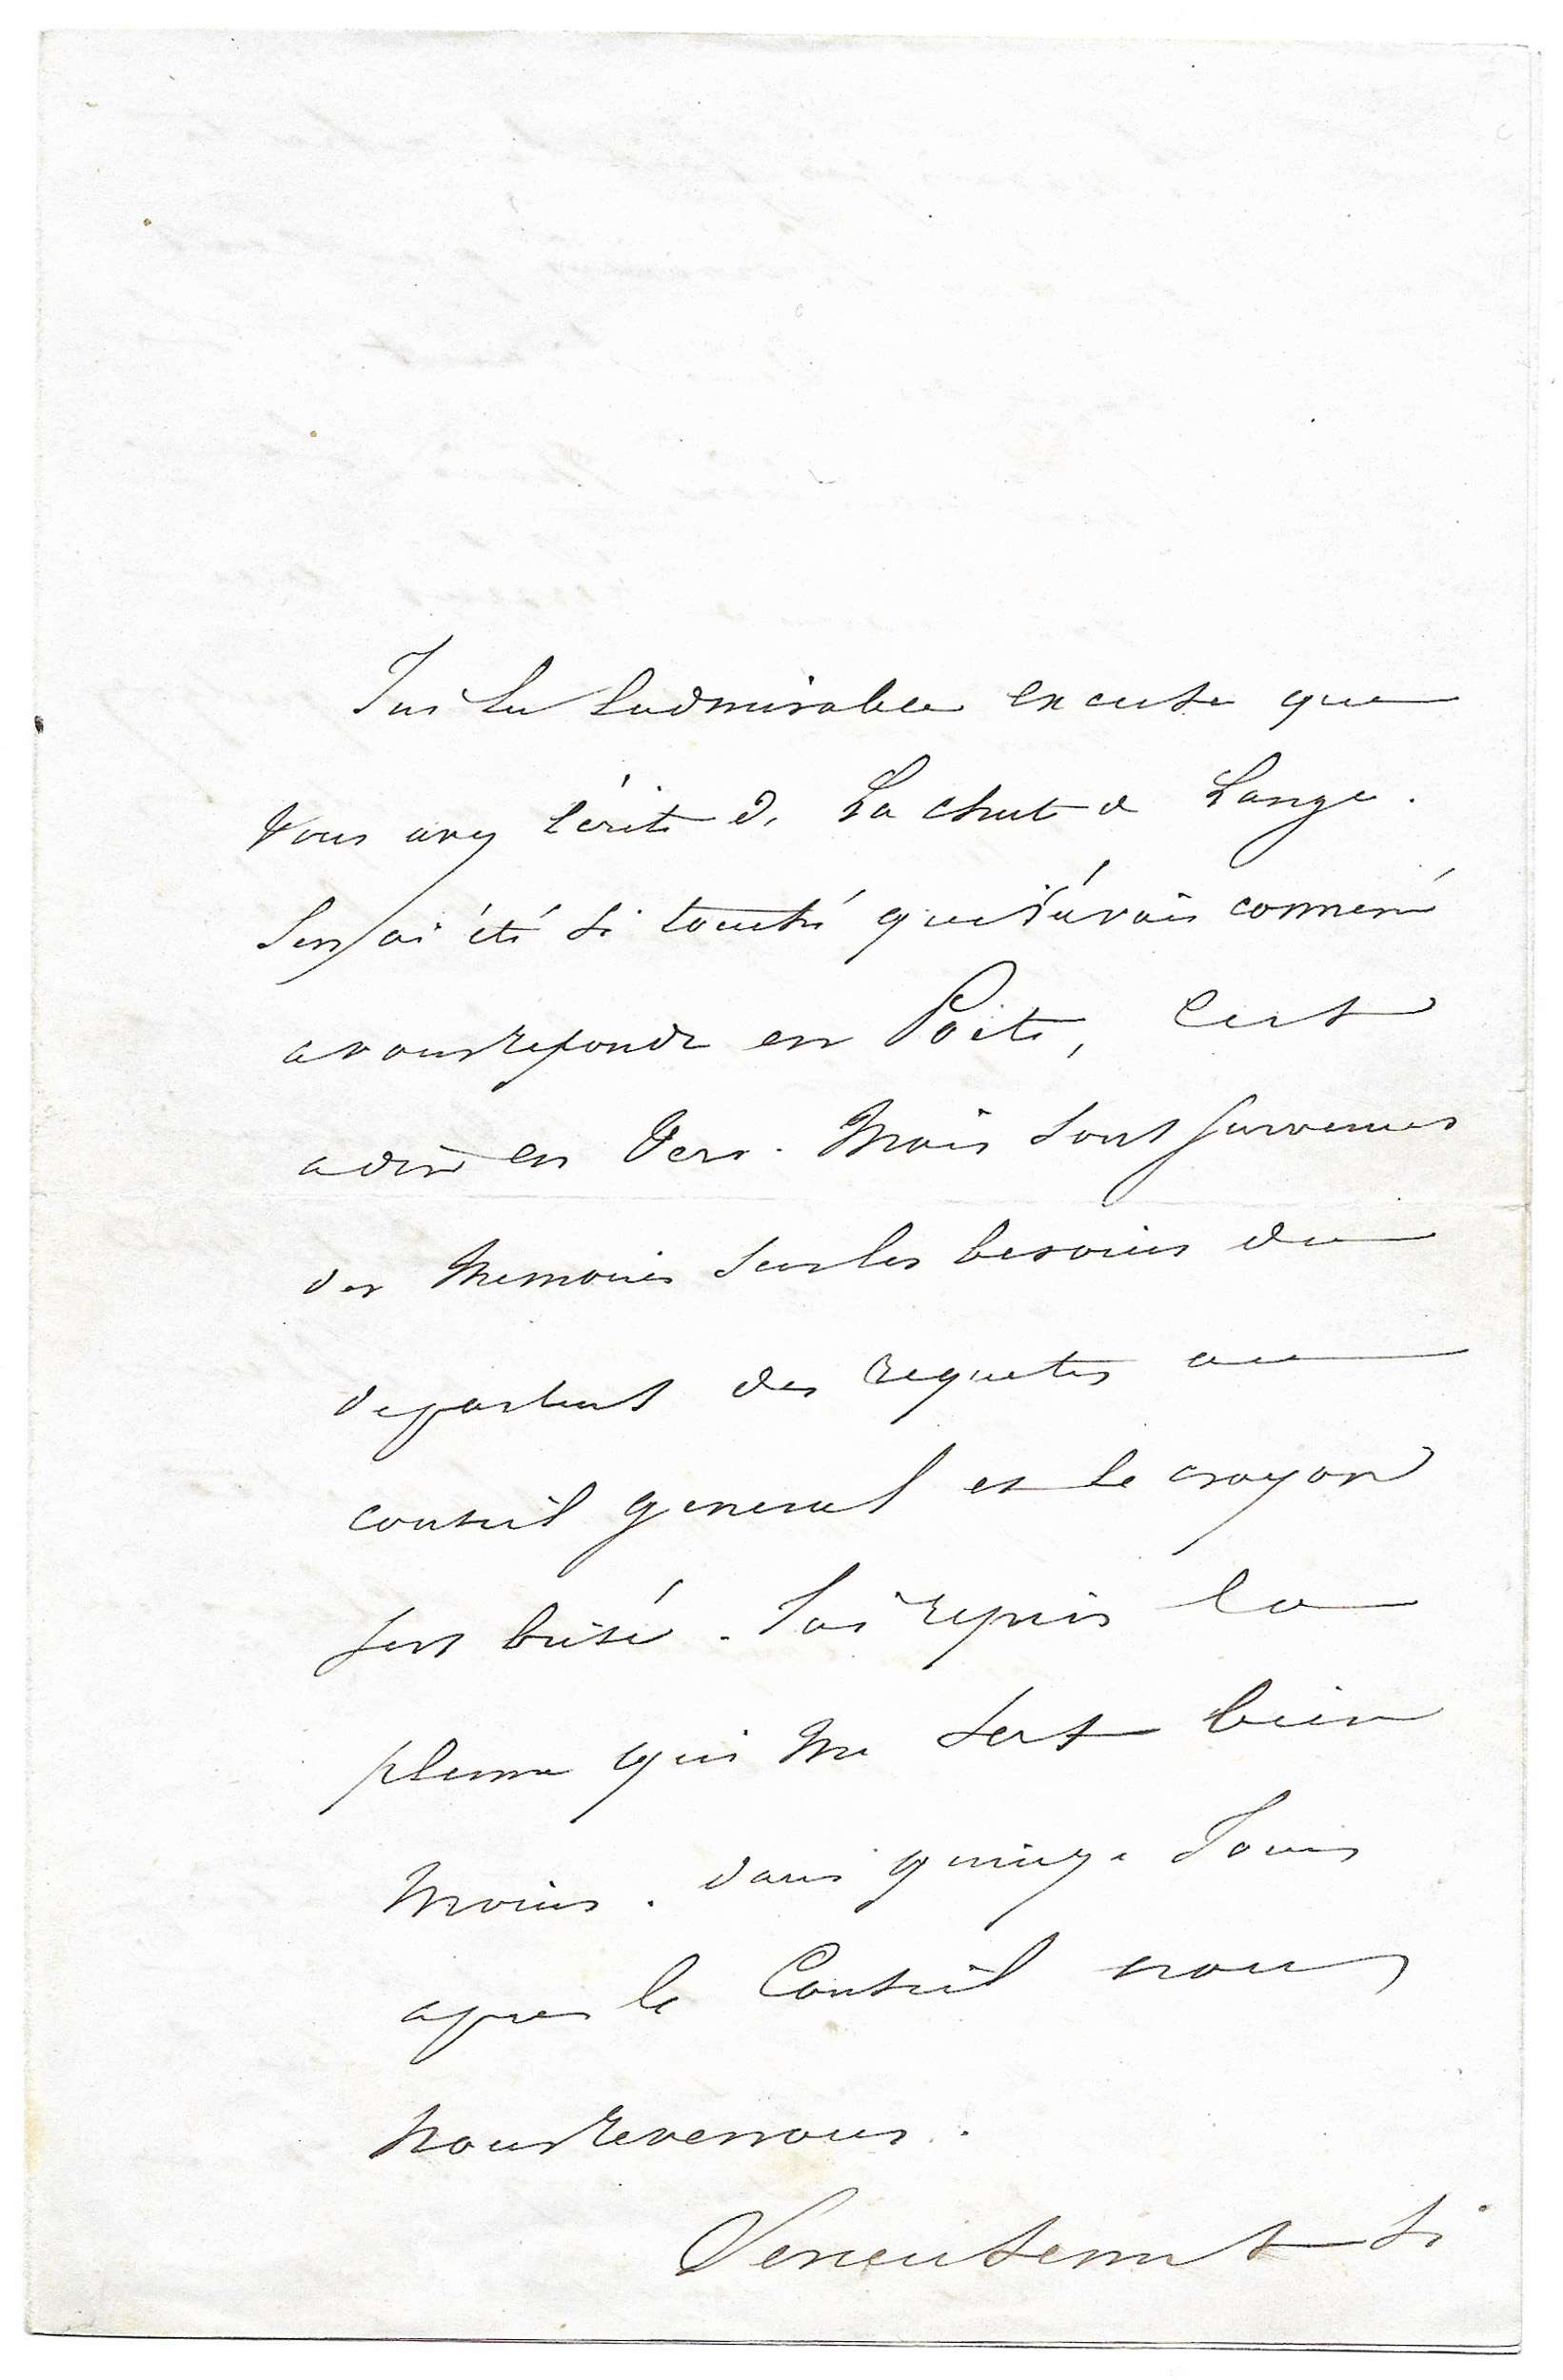 J'ai lu l'admirable excuse que
vous avez écrite de La chute de L'ange.
J'en ai été si touché que j'avais commencé
a vous repondre en Poëte, c'est
a dire en vers. Mais sont survenues
des Memoires sur les besoins du
departement des requetes au
conseil general et le crayon
s'est brisé. J'ai repris la
plume qui me sert bien
moins. dans quinze jours
apres le Conseil nous
nous reverrons.
Serieusement si